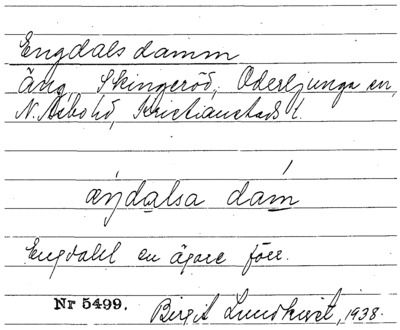 Engdalsdamm
Äng, Skingeröd, Oderljunga sn,
N. Åsbo hd, Kristianstads l.
æŋdalsa dam
Engdahl en ägare förr.
Nr 5499. Birgit Lundkvist, 1938.